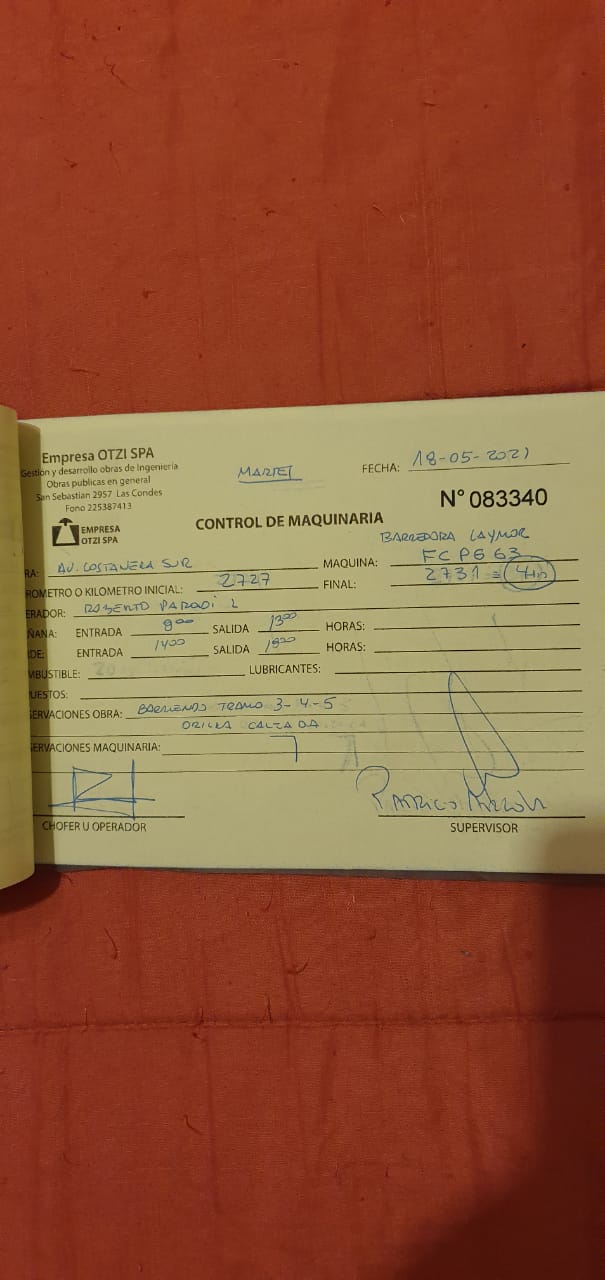 Empresa OTZI SPA
Gestión y desarrollo obras de Ingeniería
Obras publicas en general
San Sebastian 2957 Las Condes
Fono 225387413
EMPRESA
OTZI SPA
MARTES
FECHA: 18-05-2021
N° 083340
CONTROL DE MAQUINARIA
BARREDORA LAYMOR
RA: AV. COSTANERA SUR MAQUINA: FCPG63
ROMETRO O KILOMETRO INICIAL: 2727 FINAL: 2731 = 4 HR
ERADOR: ROBERTO PARODI L
ÑANA: ENTRADA 800 SALIDA 1300 HORAS:
DE: ENTRADA 1400 SALIDA HORAS:
MBUSTIBLE: LUBRICANTES:
UESTOS:
SERVACIONES OBRA: BARRIENDO TRAMO 3-4-5
ORILLA CALZADA
SERVACIONES MAQUINARIA:
CHOFER U OPERADOR
PATRICIO
SUPERVISOR